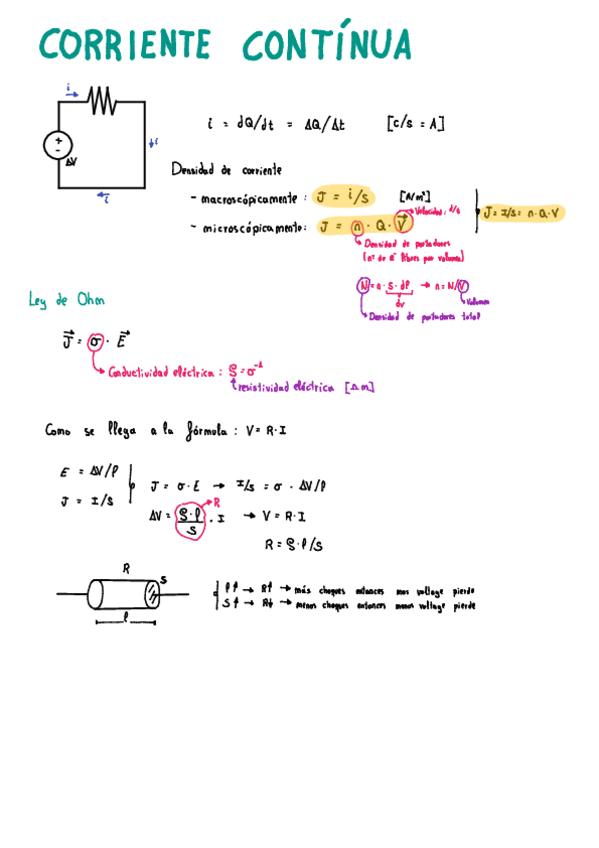 CORRIENTE CONTÍNUA
i
i = dQ/dt = ΔQ/Δt [C/s = A]
+
-
ΔV
i
i
Densidad de corriente
- macroscópicamente : J = i/s [A/m²]
Velocidad: d/t
J = I/s = n · Q · V
- microscópicamente: J = n · Q · V⃗
Densidad de portadores
(nº de e⁻ libres por volumen)
N = n · S · dl → n = N/V
dv
Volumen
Densidad de portadores total
Ley de Ohm
J⃗ = σ · E⃗
Conductividad eléctrica : ρ = σ⁻¹
resistividad eléctrica [Ωm]
Como se llega a la fórmula : V = R · I
E = ΔV/l
J = I/S
J = σ · E → I/s = σ · ΔV/l
R
ΔV = ρ · l / S · I → V = R · I
R = ρ · l/s
R
S
l
l↑ → R↑ → más choques entonces mas voltage pierde
S↑ → R↓ → menos choques entonces menos voltage pierde